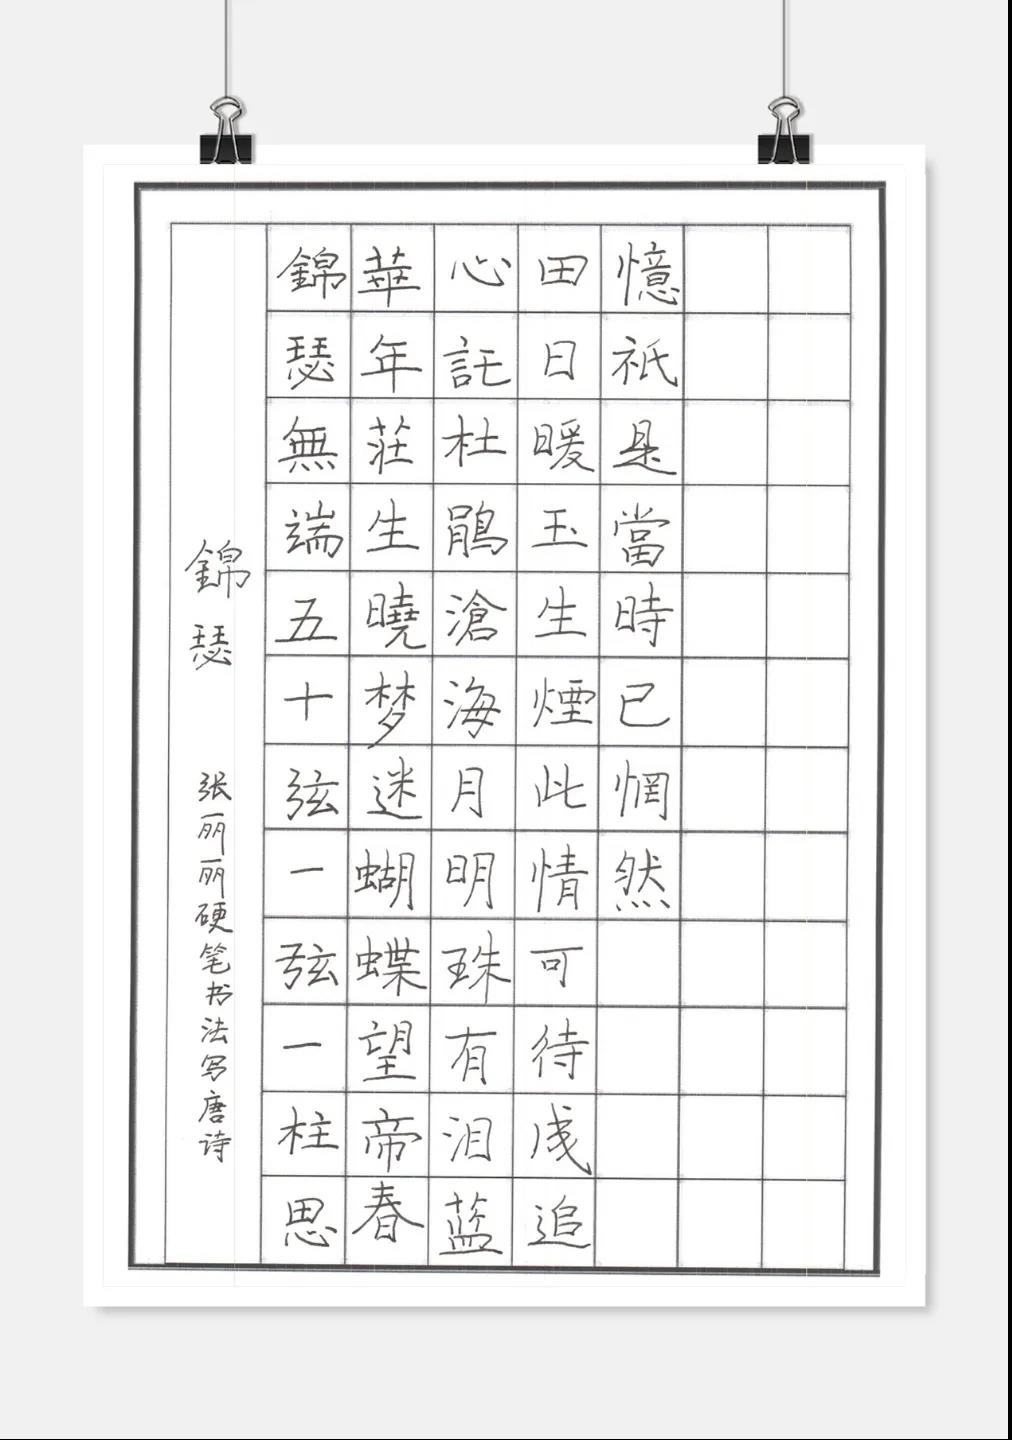 錦瑟
张丽丽硬笔书法写唐诗
錦瑟無端五十弦一弦一柱思
華年莊生曉梦迷蝴蝶望帝春
心託杜鵑滄海月明珠有泪蓝
田日暖玉生煙此情可待成追
憶祇是當時已惘然